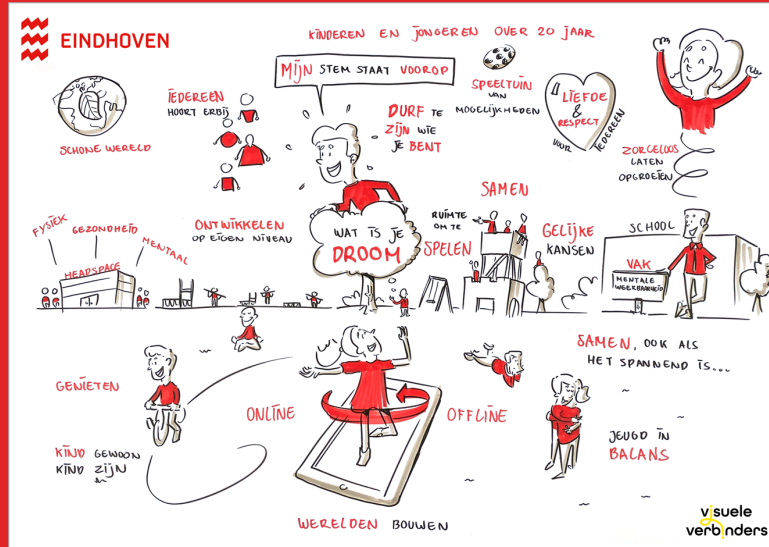 EINDHOVEN
KINDEREN EN JONGEREN OVER 20 JAAR
MIJN STEM STAAT VOOROP
SCHONE WERELD
IEDEREEN
HOORT ERBIJ
DURF TE
ZIJN WIE
JE BENT
SPEELTUIN
VAN
MOGELIJKHEDEN
LIEFDE
&
RESPECT
VOOR IEDEREEN
ZORGELOOS
LATEN
OPGROEIEN
FYSIEK
GEZONDHEID
MENTAAL
HEADSPACE
ONTWIKKELEN
OP EIGEN NIVEAU
WAT IS JE
DROOM
RUIMTE
OM TE
SPELEN
SAMEN
GELIJKE
KANSEN
SCHOOL
VAK
MENTALE
WEERBAARHEID
GENIETEN
KIND GEWOON
KIND ZIJN
ONLINE
OFFLINE
WERELDEN BOUWEN
SAMEN, OOK ALS
HET SPANNEND IS...
JEUGD IN
BALANS
visuele
verbinders